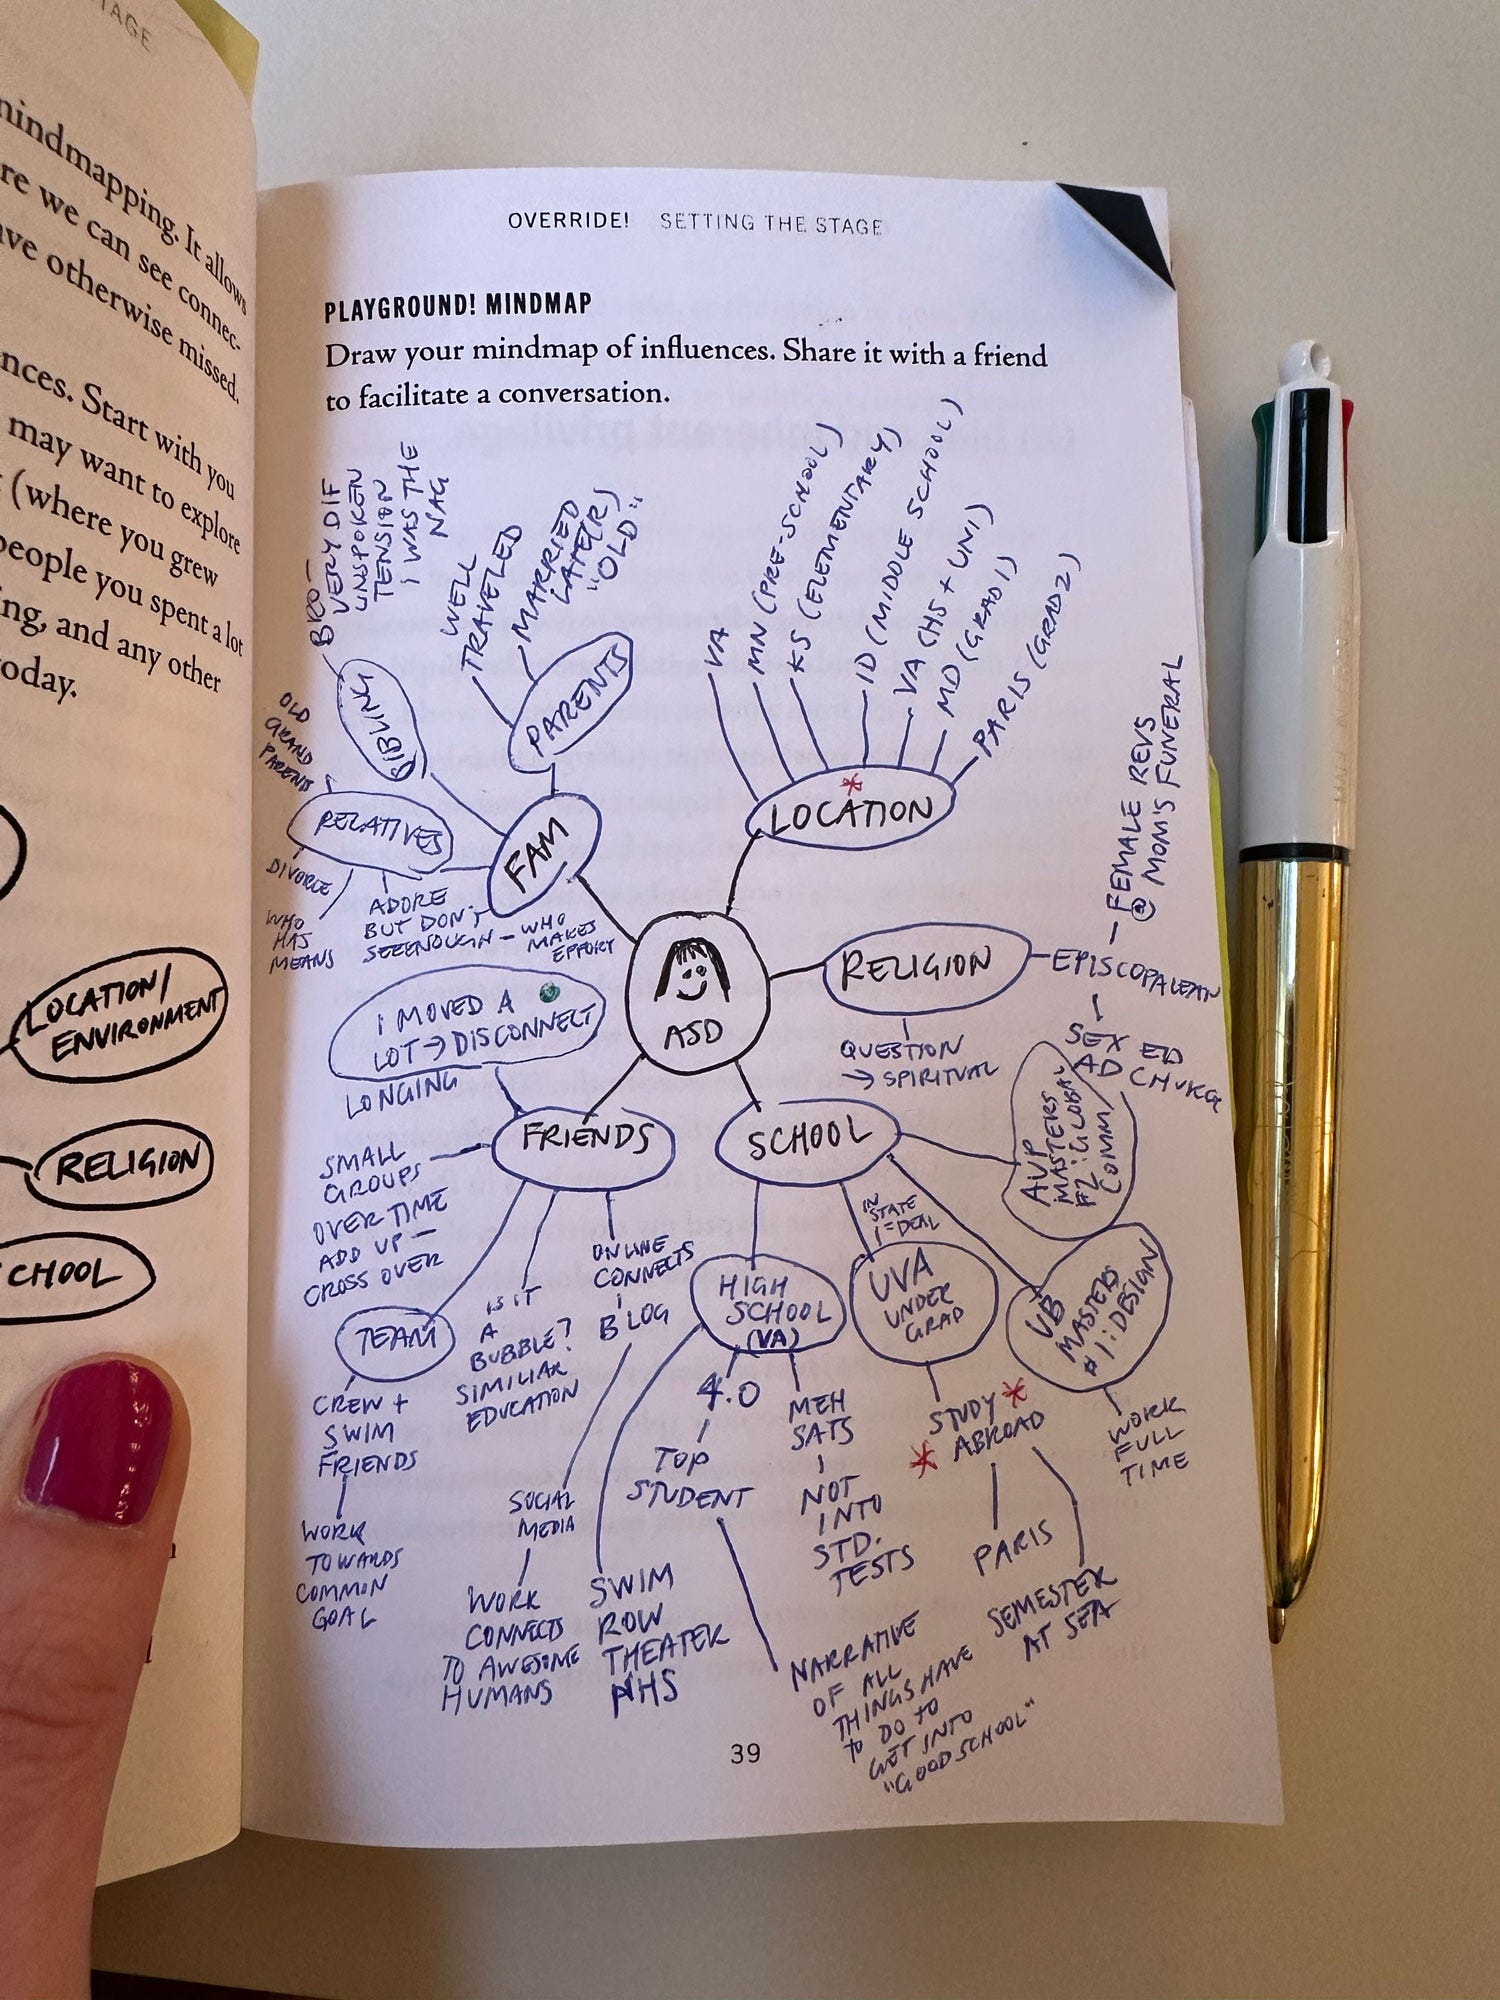 TAGE
mindmapping. It allows
re we can see connec-
ave otherwise missed.
nces. Start with you
may want to explore
(where you grew
people you spent a lot
ing, and any other
today.
LOCATION/
ENVIRONMENT
RELIGION
CHOOL
OVERRIDE! SETTING THE STAGE
PLAYGROUND! MINDMAP
Draw your mindmap of influences. Share it with a friend
to facilitate a conversation.
BRO -
VERY DIF
UNSPOKEN
TENSION
I WAS THE
NAG
WELL
TRAVELED
MARRIED
LATER)
"OLD"
SIBLING
PARENTS
OLD
GRAND
PARENTS
RELATIVES
DIVORCE
WHO
HAS
MEANS
ADORE
BUT DON'T
SEE ENOUGH - WHO
MAKES
EFFORT
FAM
VA
MN (PRE-SCHOOL)
KS (ELEMENTARY)
ID (MIDDLE SCHOOL)
VA (HS + UNI)
MD (GRAD1)
PARIS (GRAD2)
* LOCATION
ASD
RELIGION
EPISCOPALEAN
FEMALE REVS
@ MOM'S FUNERAL
QUESTION
→ SPIRITUAL
SEX ED
AD CHURCH
I MOVED A
LOT → DISCONNECT
LONGING
FRIENDS
SMALL
GROUPS
OVER TIME
ADD UP -
CROSS OVER
TEAM
CREW +
SWIM
FRIENDS
WORK
TOWARDS
COMMON
GOAL
IS IT
A
BUBBLE?
SIMILIAR
EDUCATION
ONLINE
CONNECTS
BLOG
SOCIAL
MEDIA
WORK
CONNECTS
TO AWESOME
HUMANS
SCHOOL
AUP
MASTERS
#2: GLOBAL
COMM
IN
STATE
= DEAL
HIGH
SCHOOL
(VA)
4.0
TOP
STUDENT
MEH
SATS
NOT
INTO
STD.
TESTS
SWIM
ROW
THEATER
NHS
NARRATIVE
OF ALL
THINGS HAVE
TO DO TO
GET INTO
"GOOD SCHOOL"
UVA
UNDER
GRAD
STUDY *
* ABROAD
PARIS
SEMESTER
AT SEA
UB
MASTERS
#1: DESIGN
WORK
FULL
TIME
39